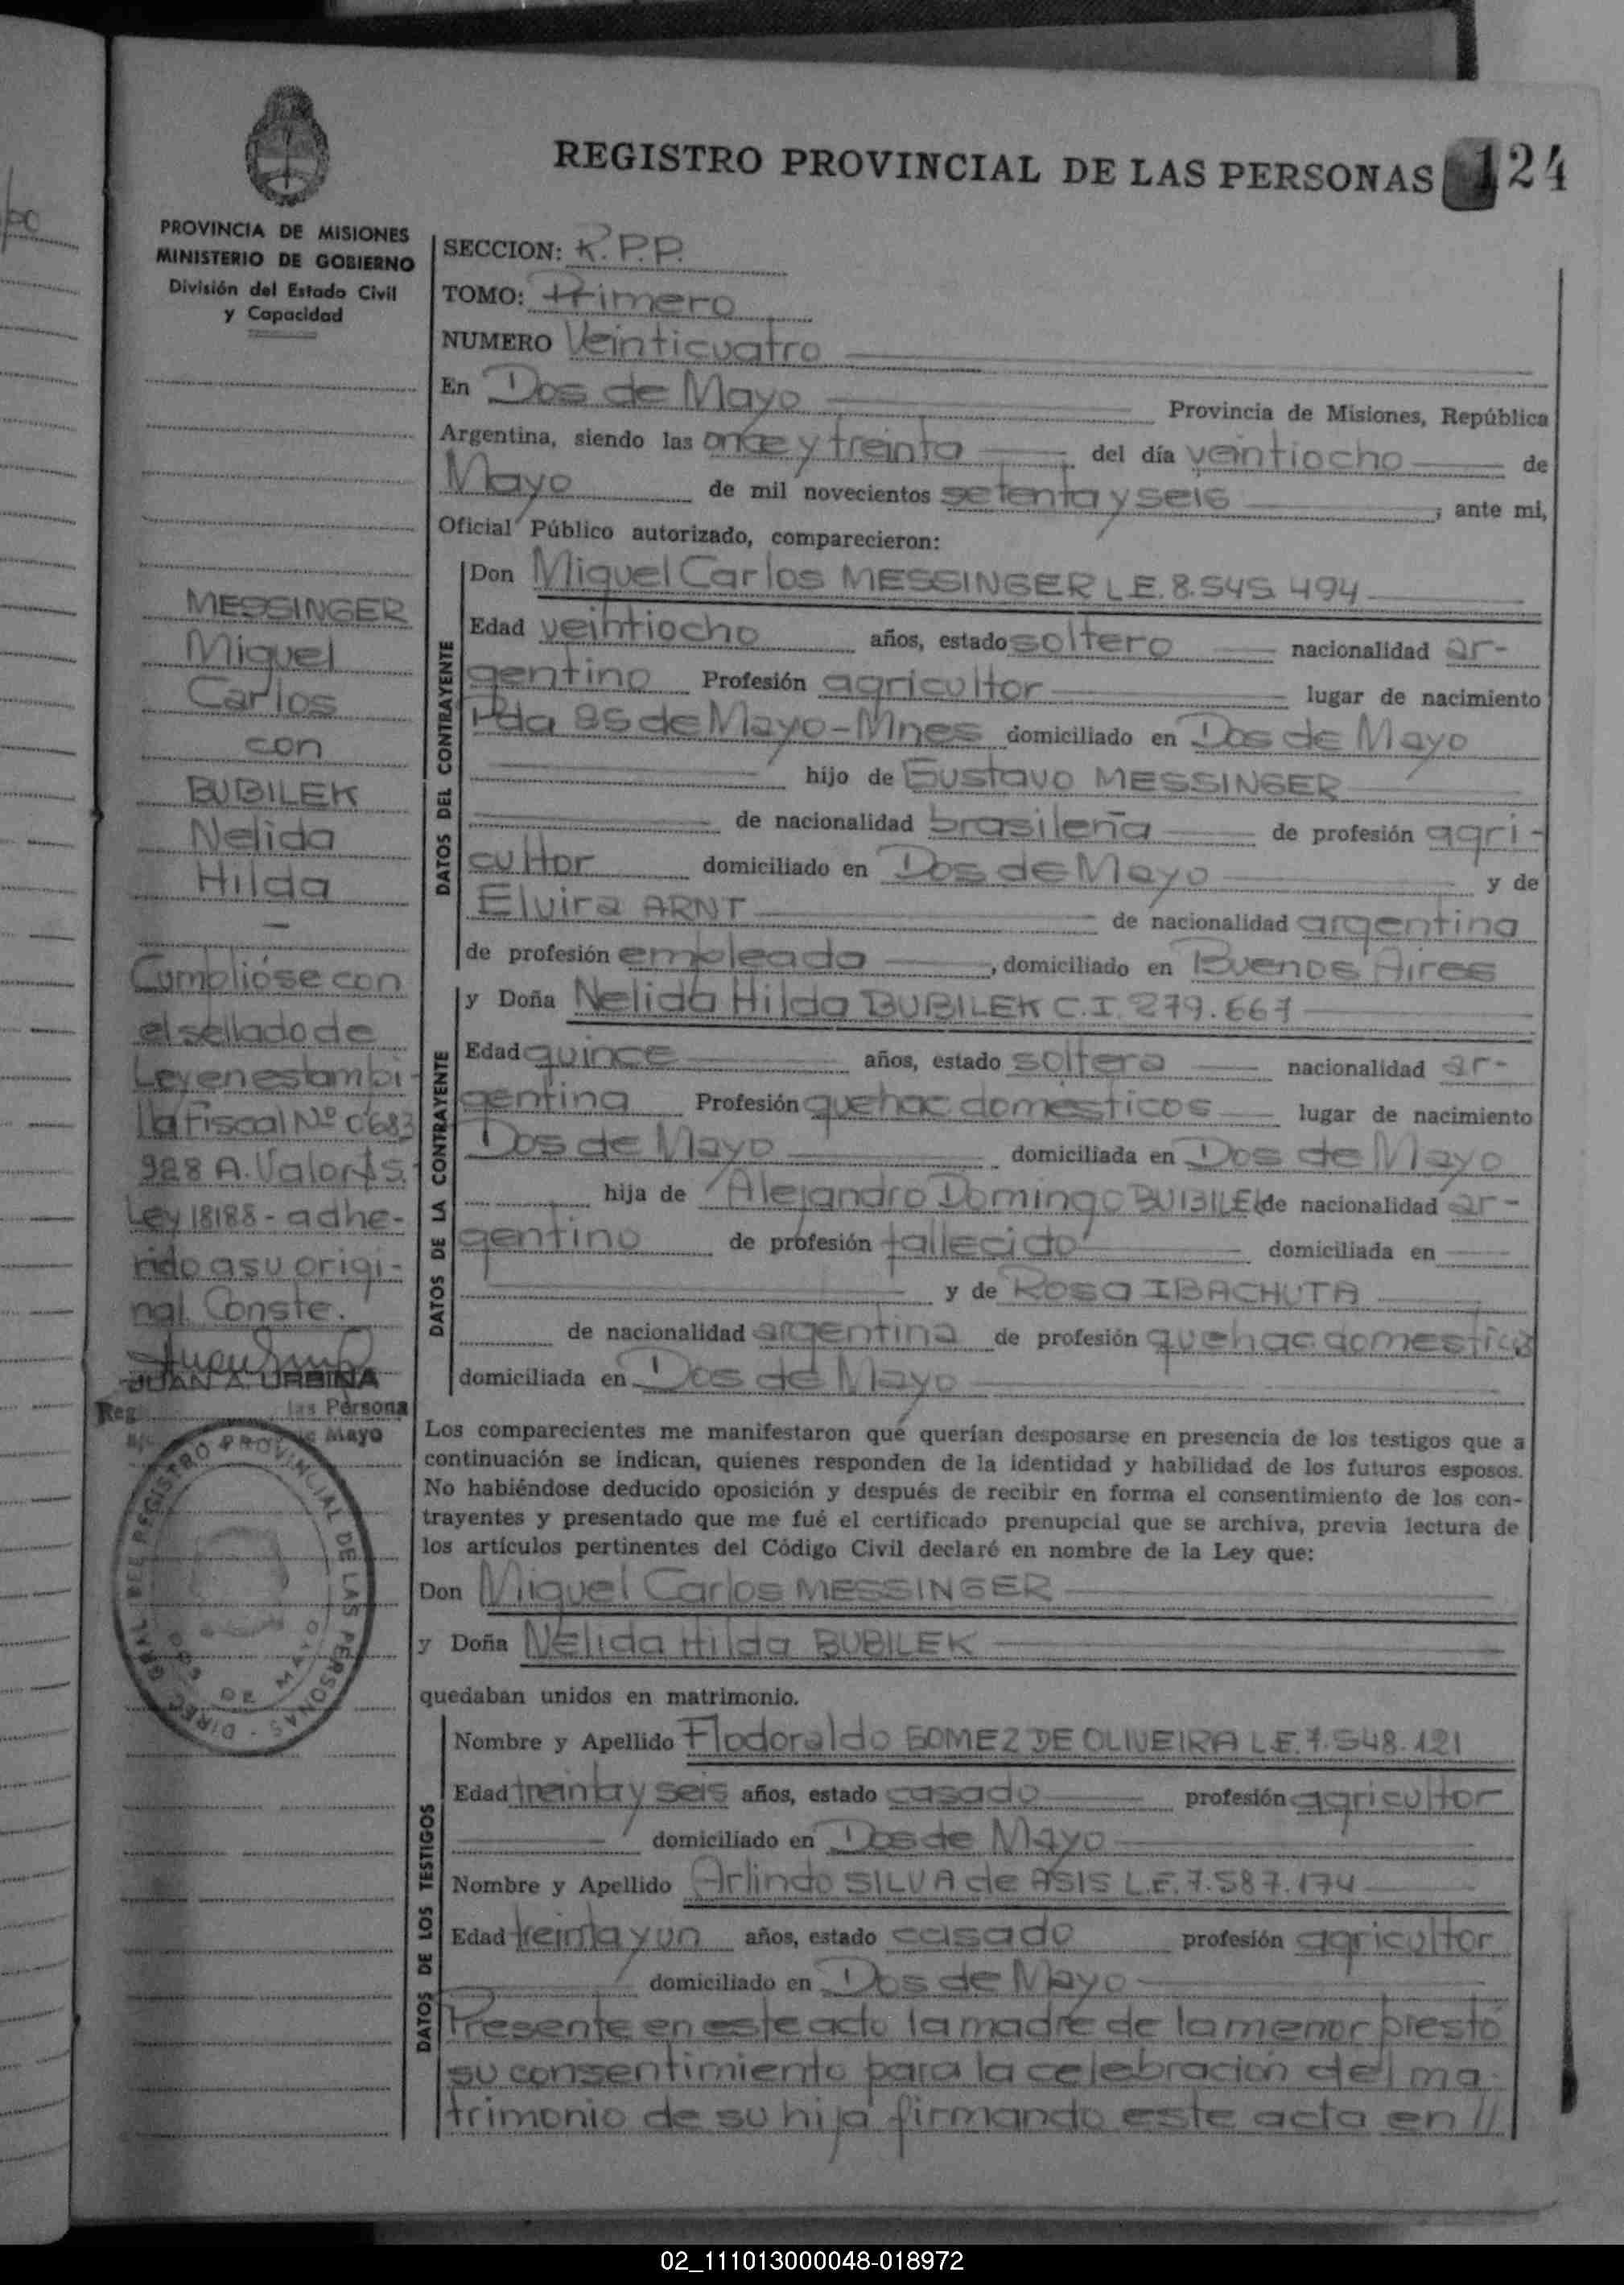 REGISTRO PROVINCIAL DE LAS PERSONAS 124
PROVINCIA DE MISIONES
MINISTERIO DE GOBIERNO
División del Estado Civil
y Capacidad
MESSINGER
Miguel
Carlos
con
BUBILEK
Nelida
Hilda
Cumplióse con
el sellado de
Ley en estampi-
lla Fiscal Nº 0683
928 A. Valor $ 5.
Ley 18188 - adhe-
rido a su origi-
nal. Conste.
JUAN A. URBINA
las Persona
Mayo
DIREC. GRAL. DEL REGISTRO PROVINCIAL DE LAS PERSONAS -
DOS DE MAYO
SECCION: R.P.P.
TOMO: Primero
NUMERO Veinticuatro
En Dos de Mayo Provincia de Misiones, República
Argentina, siendo las once y treinta del día veintiocho de
Mayo de mil novecientos setenta y seis, ante mi,
Oficial Público autorizado, comparecieron:
DATOS DEL CONTRAYENTE
Don Miguel Carlos MESSINGER L.E. 8.545.494
Edad veintiocho años, estado soltero nacionalidad ar-
gentino Profesión agricultor lugar de nacimiento
Pda 25 de Mayo - Mnes domiciliado en Dos de Mayo
hijo de Gustavo MESSINGER
de nacionalidad brasileña de profesión agri-
cultor domiciliado en Dos de Mayo y de
Elvira ARNT de nacionalidad argentina
de profesión empleada, domiciliado en Buenos Aires
DATOS DE LA CONTRAYENTE
y Doña Nelida Hilda BUBILEK C.I. 279.667
Edad quince años, estado soltera nacionalidad ar-
gentina Profesión quehac domésticos lugar de nacimiento
Dos de Mayo domiciliada en Dos de Mayo
hija de Alejandro Domingo BUBILEK de nacionalidad ar-
gentino de profesión fallecido domiciliada en
y de Rosa IBACHUTA
de nacionalidad argentina de profesión quehac domesticos
domiciliada en Dos de Mayo
Los comparecientes me manifestaron qué querían desposarse en presencia de los testigos que a
continuación se indican, quienes responden de la identidad y habilidad de los futuros esposos.
No habiéndose deducido oposición y después de recibir en forma el consentimiento de los con-
trayentes y presentado que me fué el certificado prenupcial que se archiva, previa lectura de
los artículos pertinentes del Código Civil declaré en nombre de la Ley que:
Don Miguel Carlos MESSINGER
y Doña Nélida Hilda BUBILEK
quedaban unidos en matrimonio.
DATOS DE LOS TESTIGOS
Nombre y Apellido Flodoraldo GOMEZ DE OLIVEIRA L.E. 7.548.121
Edad treinta y seis años, estado casado profesión agricultor
domiciliado en Dos de Mayo
Nombre y Apellido Arlindo SILVA de ASIS L.E. 7.587.174
Edad treinta y un años, estado casado profesión agricultor
domiciliado en Dos de Mayo
Presente en este acto la madre de la menor prestó
su consentimiento para la celebración del ma-
trimonio de su hija firmando este acta en //
02_111013000048-018972